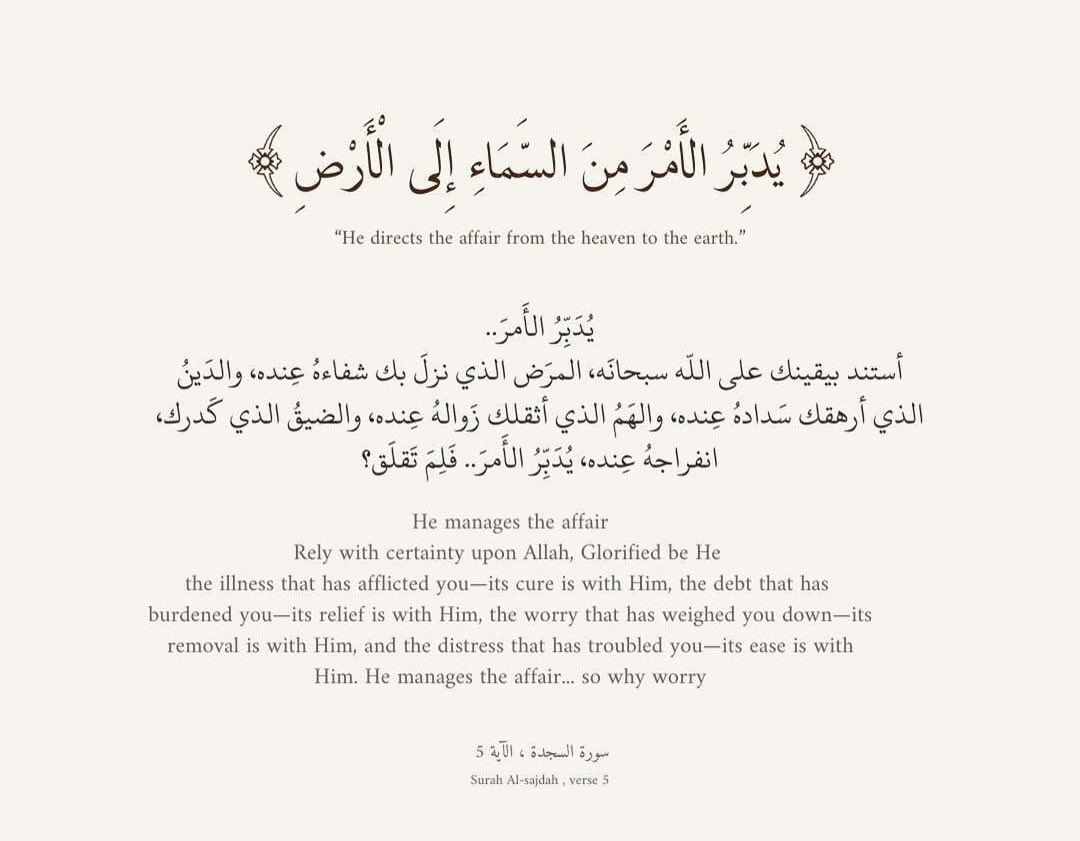 ﴿ يُدَبِّرُ الأَمْرَ مِنَ السَّمَاءِ إِلَى الْأَرْضِ ﴾
“He directs the affair from the heaven to the earth.”
يُدَبِّرُ الأَمرَ..
أستند بيقينك على اللّه سبحانَه، المرَض الذي نزلَ بك شفاءهُ عِنده، والدَينُ
الذي أرهقك سَدادهُ عِنده، والهَمُ الذي أثقلك زَوالهُ عِنده، والضيقُ الذي كَدرك،
انفراجهُ عِنده، يُدَبِّرُ الأَمرَ.. فَلِمَ تَقلَق؟
He manages the affair
Rely with certainty upon Allah, Glorified be He
the illness that has afflicted you—its cure is with Him, the debt that has
burdened you—its relief is with Him, the worry that has weighed you down—its
removal is with Him, and the distress that has troubled you—its ease is with
Him. He manages the affair... so why worry
سورة السجدة ، الآية 5
Surah Al-sajdah , verse 5